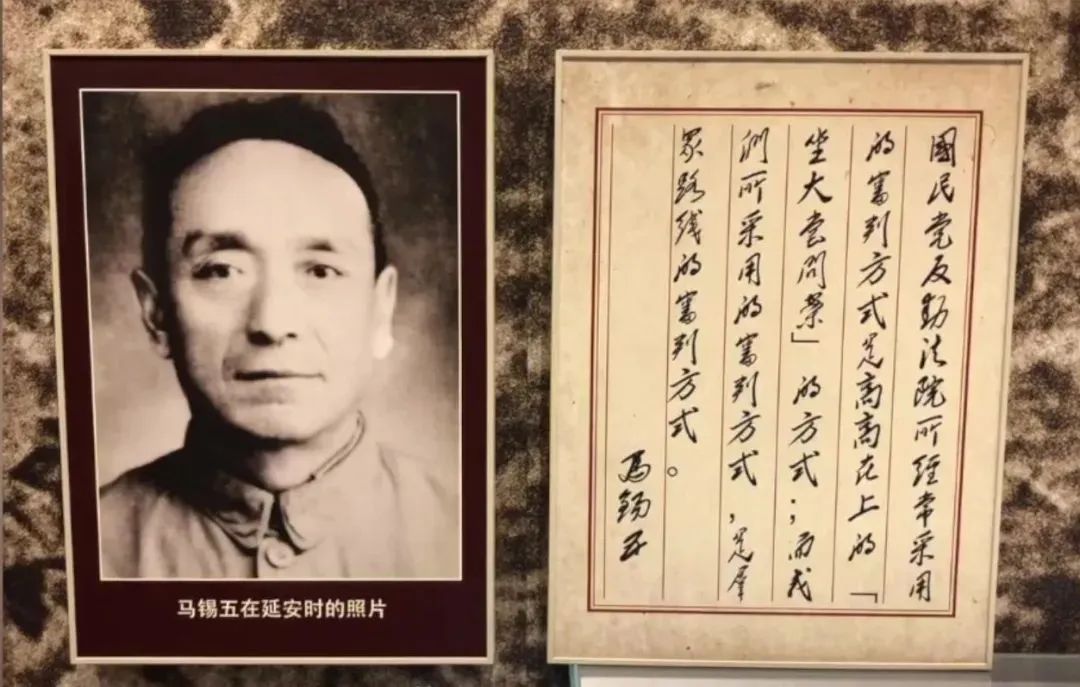 马锡五在延安时的照片
國民党反动法院所经常采用
的審判方式是高高在上的「
坐大堂问案」的方式；而我
们所采用的審判方式，是羣
眾路线的審判方式。
馬锡五